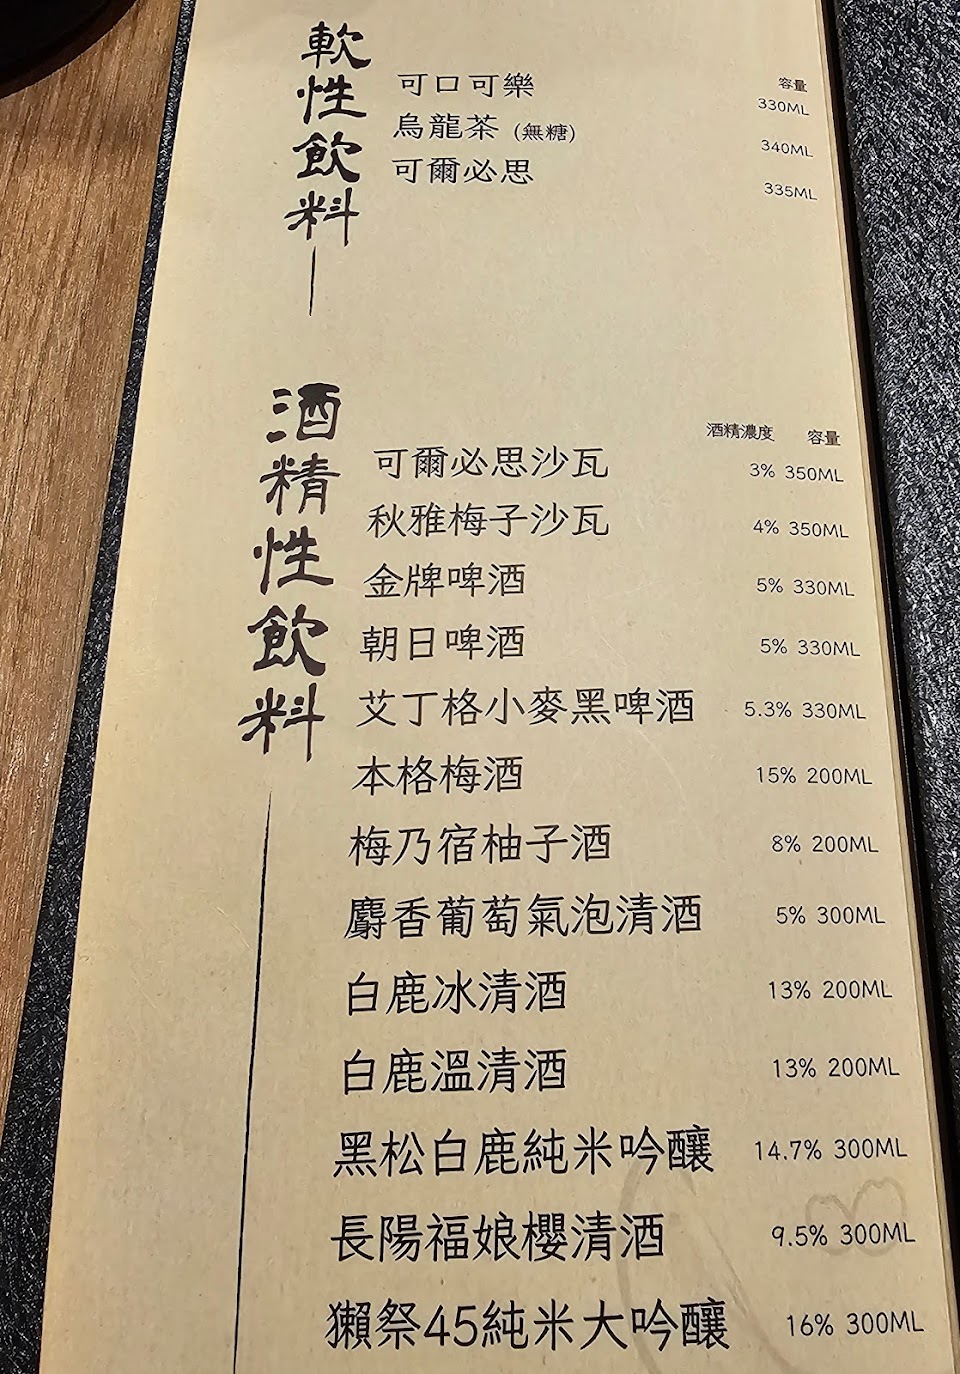 軟性飲料
容量
可口可樂 330ML
烏龍茶 (無糖) 340ML
可爾必思 335ML
酒精性飲料
酒精濃度 容量
可爾必思沙瓦 3% 350ML
秋雅梅子沙瓦 4% 350ML
金牌啤酒 5% 330ML
朝日啤酒 5% 330ML
艾丁格小麥黑啤酒 5.3% 330ML
本格梅酒 15% 200ML
梅乃宿柚子酒 8% 200ML
麝香葡萄氣泡清酒 5% 300ML
白鹿冰清酒 13% 200ML
白鹿溫清酒 13% 200ML
黑松白鹿純米吟釀 14.7% 300ML
長陽福娘櫻清酒 9.5% 300ML
獺祭45純米大吟釀 16% 300ML